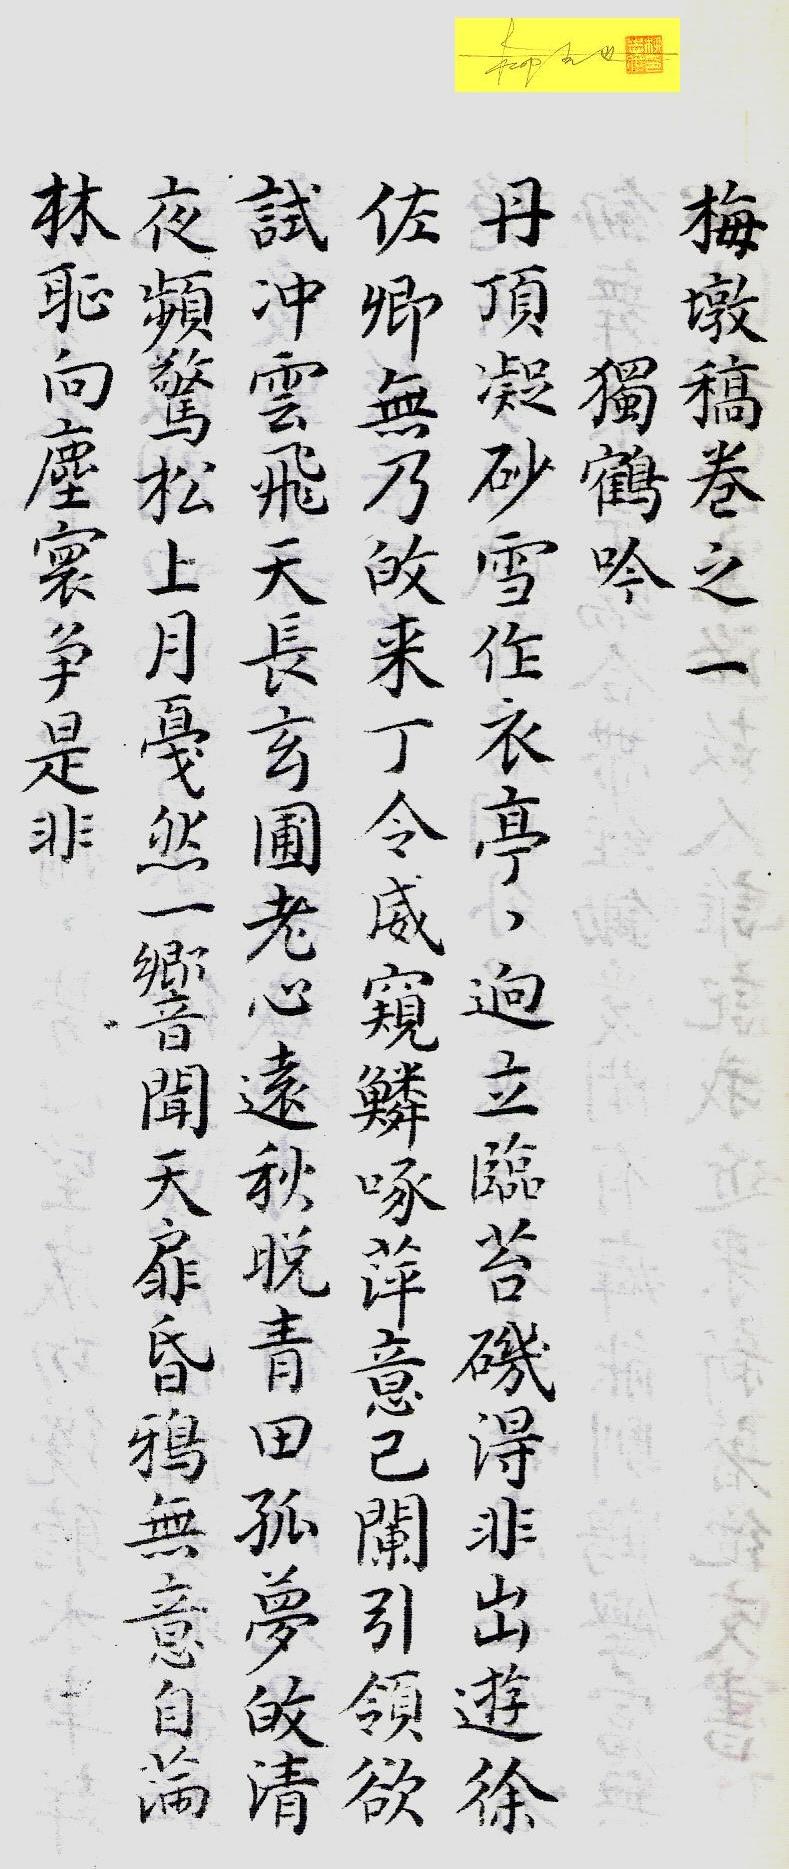 梅墩稿卷之一
獨鶴吟
丹頂凝砂雪作衣亭、逈立臨苔磯淂非出遊徐
佐卿無乃皈来丁令威窺鱗啄萍意已闌引領欲
試冲雲飛天長玄圃老心遠秋晩青田孤夢皈清
夜頻驚松上月戞然一響聞天扉昏鴉無意自
林恥向塵寰争是非